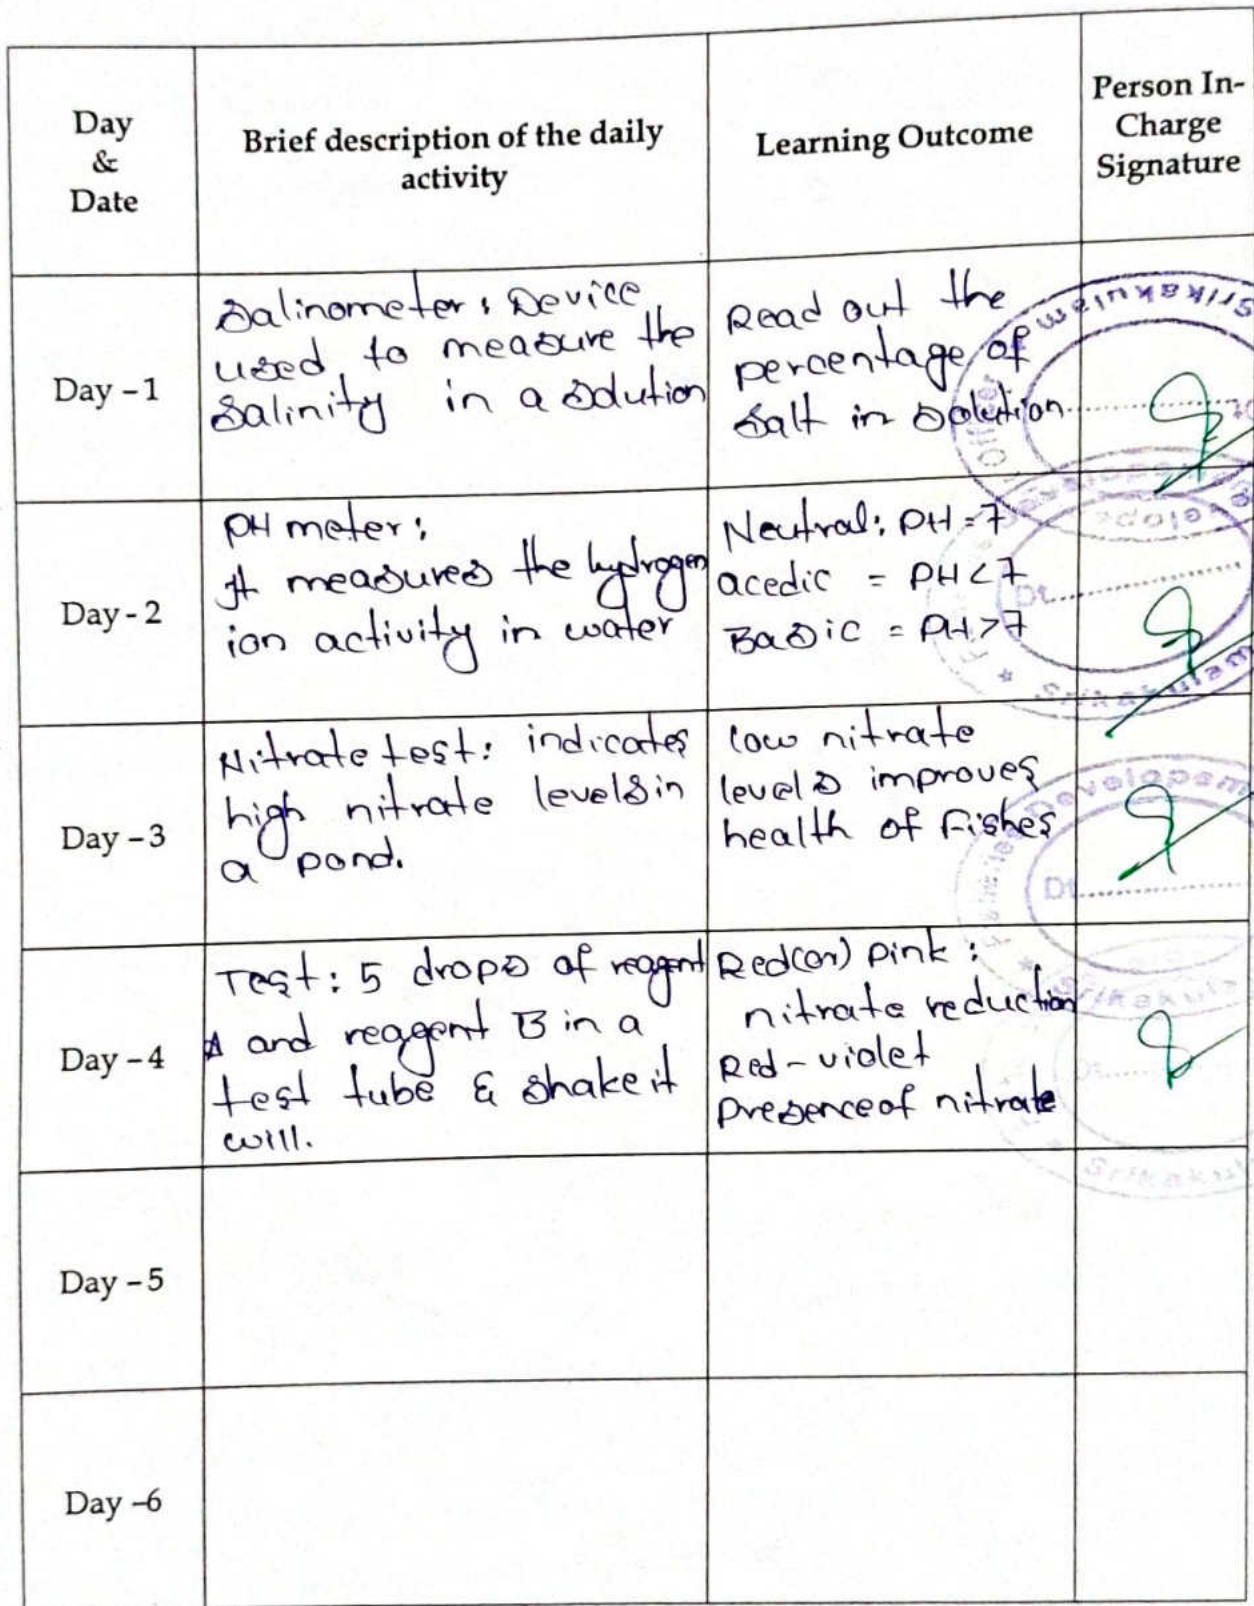 Day
&
Date
Brief description of the daily
activity
Learning Outcome
Person In-
Charge
Signature
Day - 1
Salinometer: Device
used to measure the
Salinity in a Solution
Read out the
percentage of
Salt in Solution
Srikakulam
Officer
Day - 2
PH meter:
It measures the hydrogen
ion activity in water
Neutral: PH = 7
acedic = PH < 7
Basic = PH > 7
Dt
Srikakulam
Day - 3
Nitrate test: indicates
high nitrate levels in
a pond.
low nitrate
levels improves
health of Fishes
Dt
Day - 4
Test: 5 drops of reagent
A and reagent B in a
test tube & shake it
will.
Red(or) pink:
nitrate reduction
Red-violet
presence of nitrate
Day - 5
Day - 6